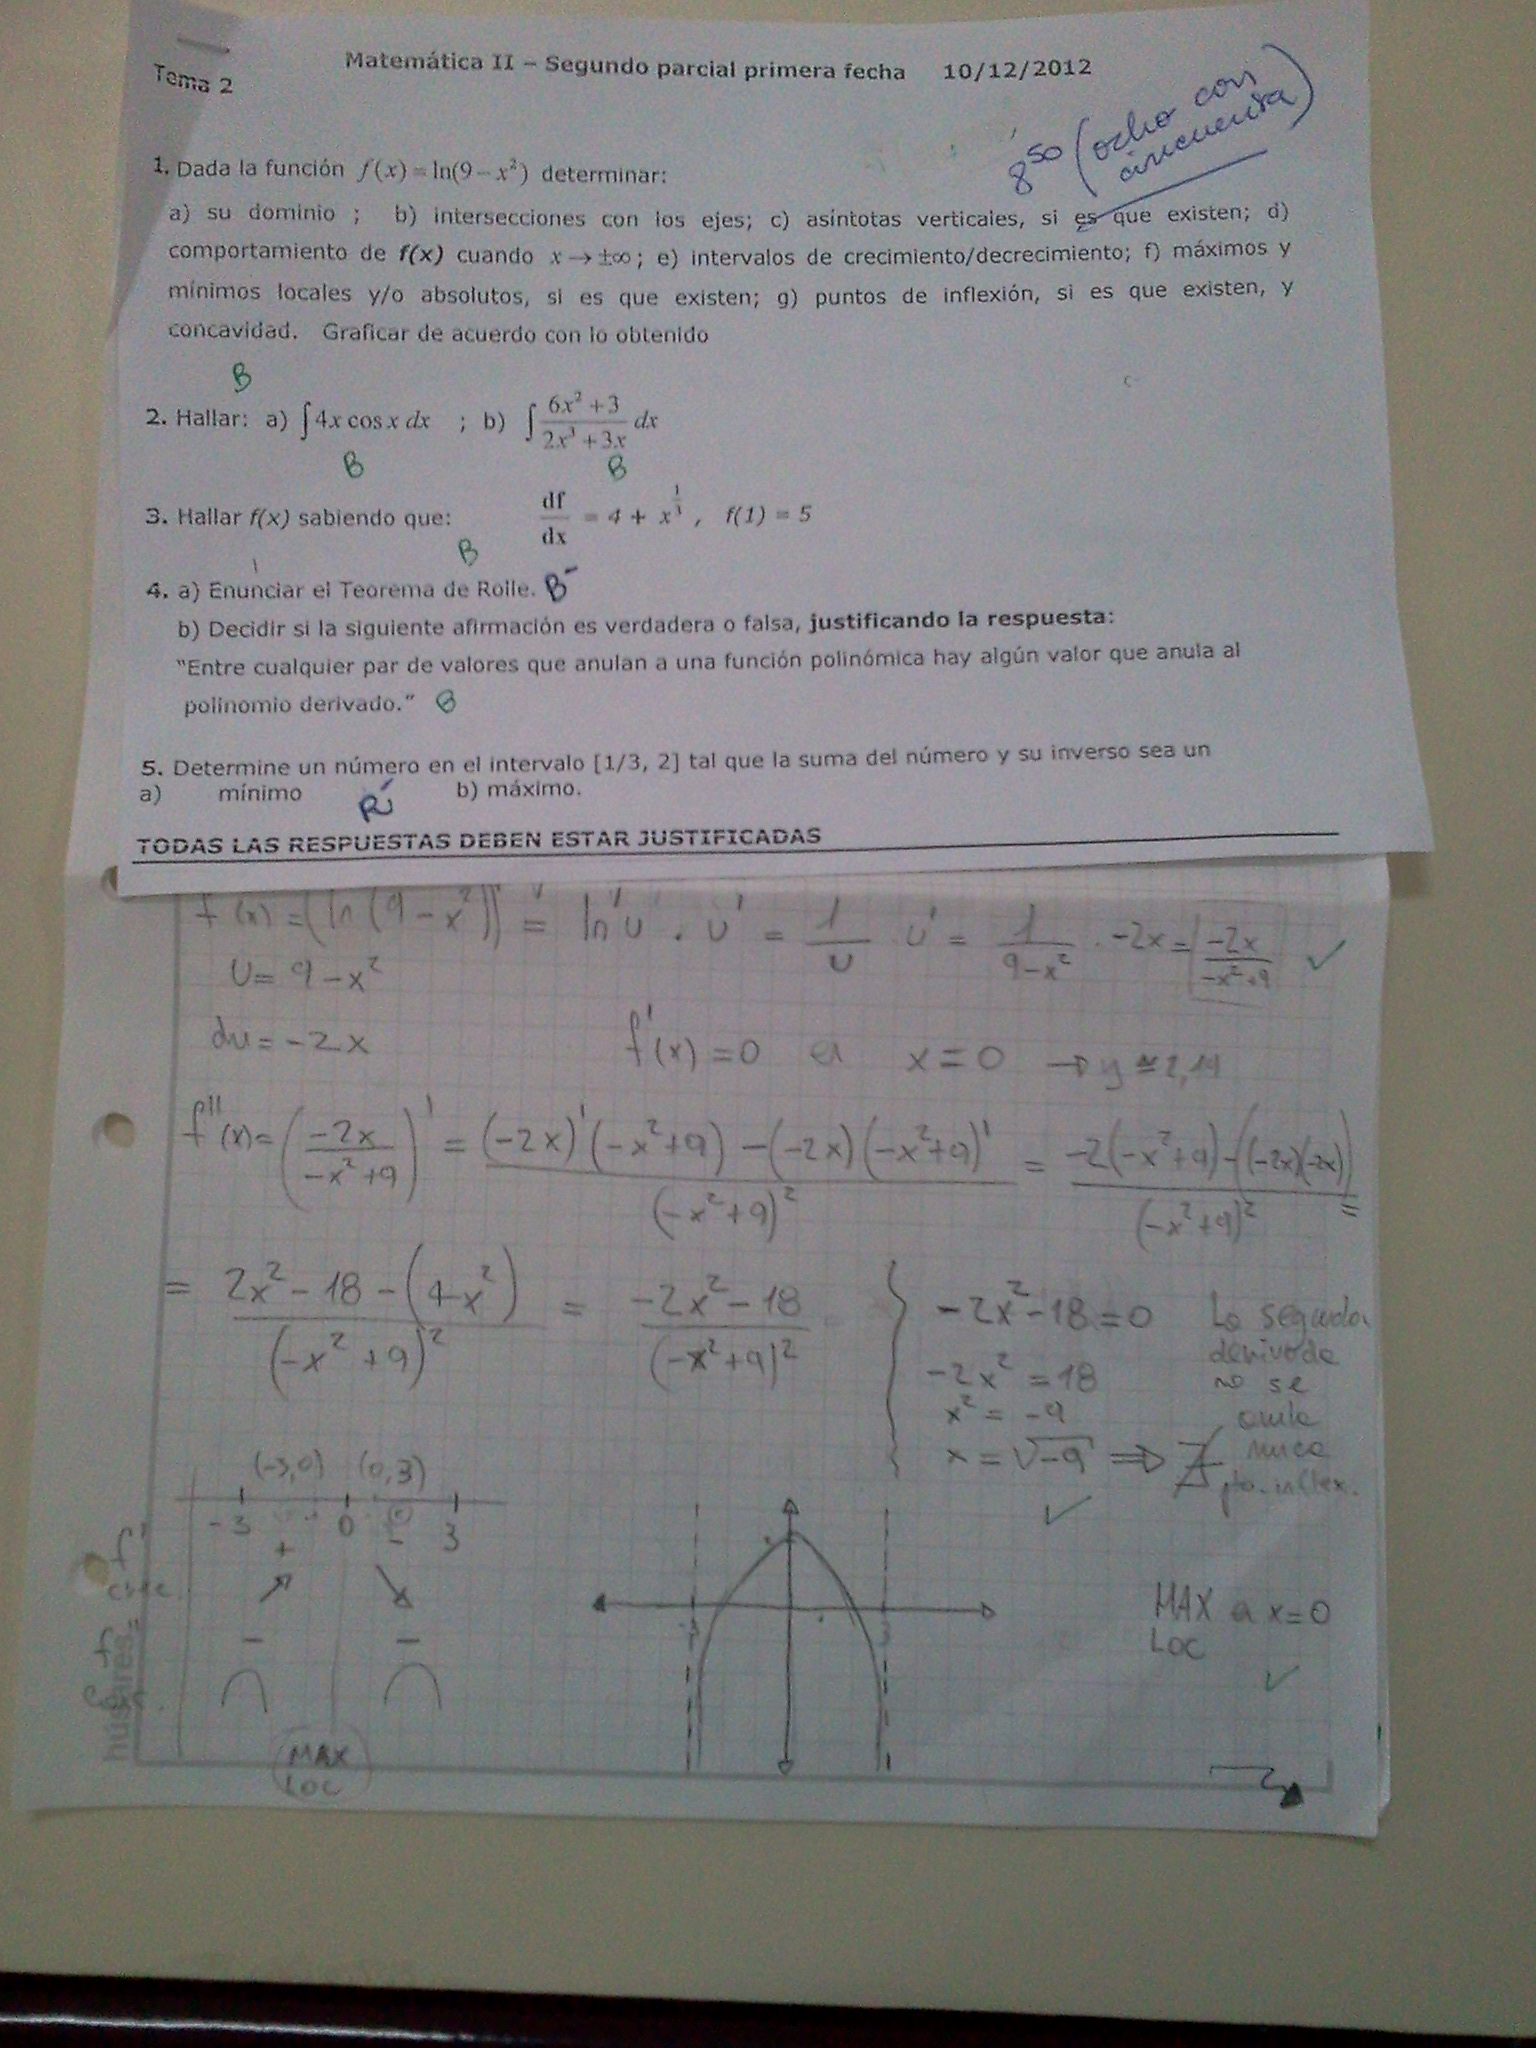 Tema 2
Matemática II – Segundo parcial primera fecha 10/12/2012
8⁵⁰ (ocho con cincuenta)
1. Dada la función f(x) = ln(9 − x²) determinar:
a) su dominio ; b) intersecciones con los ejes; c) asíntotas verticales, si es que existen; d)
comportamiento de f(x) cuando x → ±∞; e) intervalos de crecimiento/decrecimiento; f) máximos y
mínimos locales y/o absolutos, si es que existen; g) puntos de inflexión, si es que existen, y
concavidad. Graficar de acuerdo con lo obtenido
B
2. Hallar: a) ∫ 4x cos x dx ; b) ∫ (6x² + 3)/(2x³ + 3x) dx
B B
3. Hallar f(x) sabiendo que: df/dx = 4 + x^(1/3) , f(1) = 5
B
4. a) Enunciar el Teorema de Rolle. B⁻
b) Decidir si la siguiente afirmación es verdadera o falsa, justificando la respuesta:
"Entre cualquier par de valores que anulan a una función polinómica hay algún valor que anula al
polinomio derivado." B
5. Determine un número en el intervalo [1/3, 2] tal que la suma del número y su inverso sea un
a) mínimo b) máximo.
R
TODAS LAS RESPUESTAS DEBEN ESTAR JUSTIFICADAS
f'(x) = (ln(9 − x²))' = ln'u . u' = 1/u . u' = 1/(9 − x²) . −2x = −2x/(−x²+9) ✓
U = 9 − x²
du = −2x
f'(x) = 0 → y ≅ 2,19
x = 0
f''(x) = (−2x/(−x²+9))' = ((−2x)'(−x²+9) − (−2x)(−x²+9)')/(−x²+9)² = (−2(−x²+9) − ((−2x)(−2x)))/(−x²+9)² =
= (2x² − 18 − (4x²))/(−x²+9)² = (−2x² − 18)/(−x²+9)²
−2x² − 18 = 0
−2x² = 18
x² = −9
x = √−9 ⇒ ∄ pto. inflex.
La segunda
derivada
no se
anula
nunca
✓
(−3,0) (0,3)
−3 0 3
f'
+ −
crec.
− −
MAX
LOC
−3 3
MAX x=0
LOC
✓
húsares